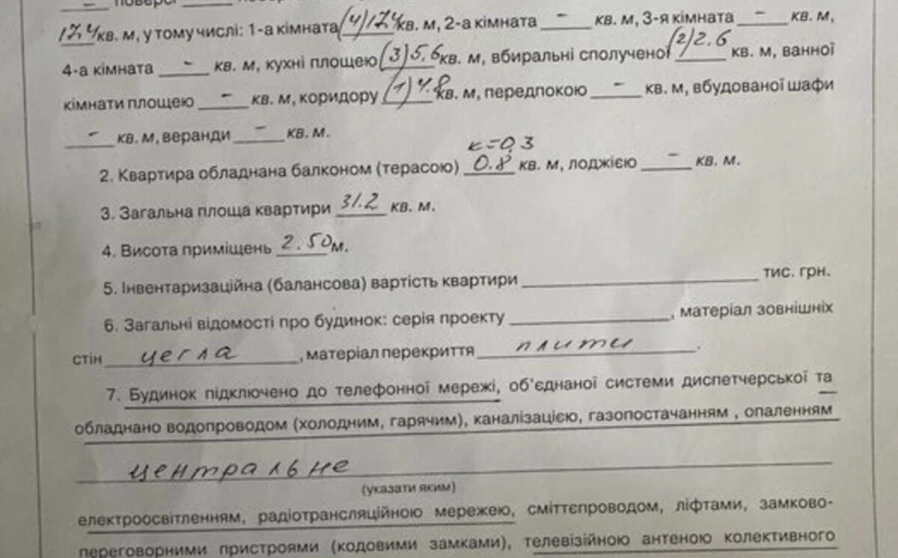 — поверсі
17.4 кв. м, у тому числі: 1-а кімната (4) 17.4 кв. м, 2-а кімната – кв. м, 3-я кімната – кв. м,
4-а кімната – кв. м, кухні площею (3) 5.6 кв. м, вбиральні сполученої (2) 2.6 кв. м, ванної
кімнати площею – кв. м, коридору (1) 4.8 кв. м, передпокою – кв. м, вбудованої шафи
– кв. м, веранди – кв. м.
к=0,3
2. Квартира обладнана балконом (терасою) 0.8 кв. м, лоджією – кв. м.
3. Загальна площа квартири 31.2 кв. м.
4. Висота приміщень 2.50 м.
5. Інвентаризаційна (балансова) вартість квартири ____ тис. грн.
6. Загальні відомості про будинок: серія проекту ____, матеріал зовнішніх
стін цегла, матеріал перекриття плити.
7. Будинок підключено до телефонної мережі, об'єднаної системи диспетчерської та
обладнано водопроводом (холодним, гарячим), каналізацією, газопостачанням , опаленням
центральне
(указати яким)
електроосвітленням, радіотрансляційною мережею, сміттєпроводом, ліфтами, замково-
переговорними пристроями (кодовими замками), телевізійною антеною колективного